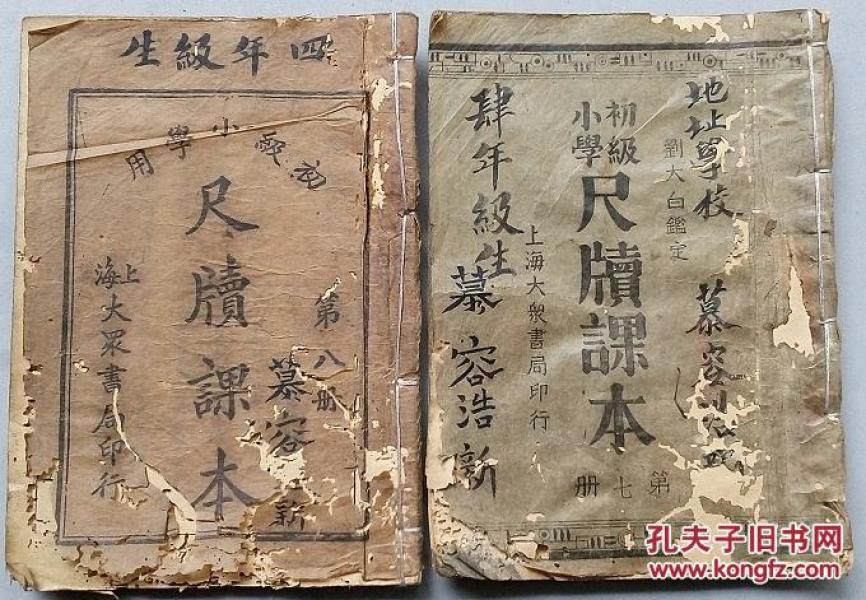 四年級生
初級小學用
尺牘課本
第八冊
慕容
新
上海大眾書局印行
地址學校
慕容
劉大白鑑定
初級小學
尺牘課本
第七册
上海大衆書局印行
肆年級生
慕容浩新
孔夫子旧书网
www.kongfz.com